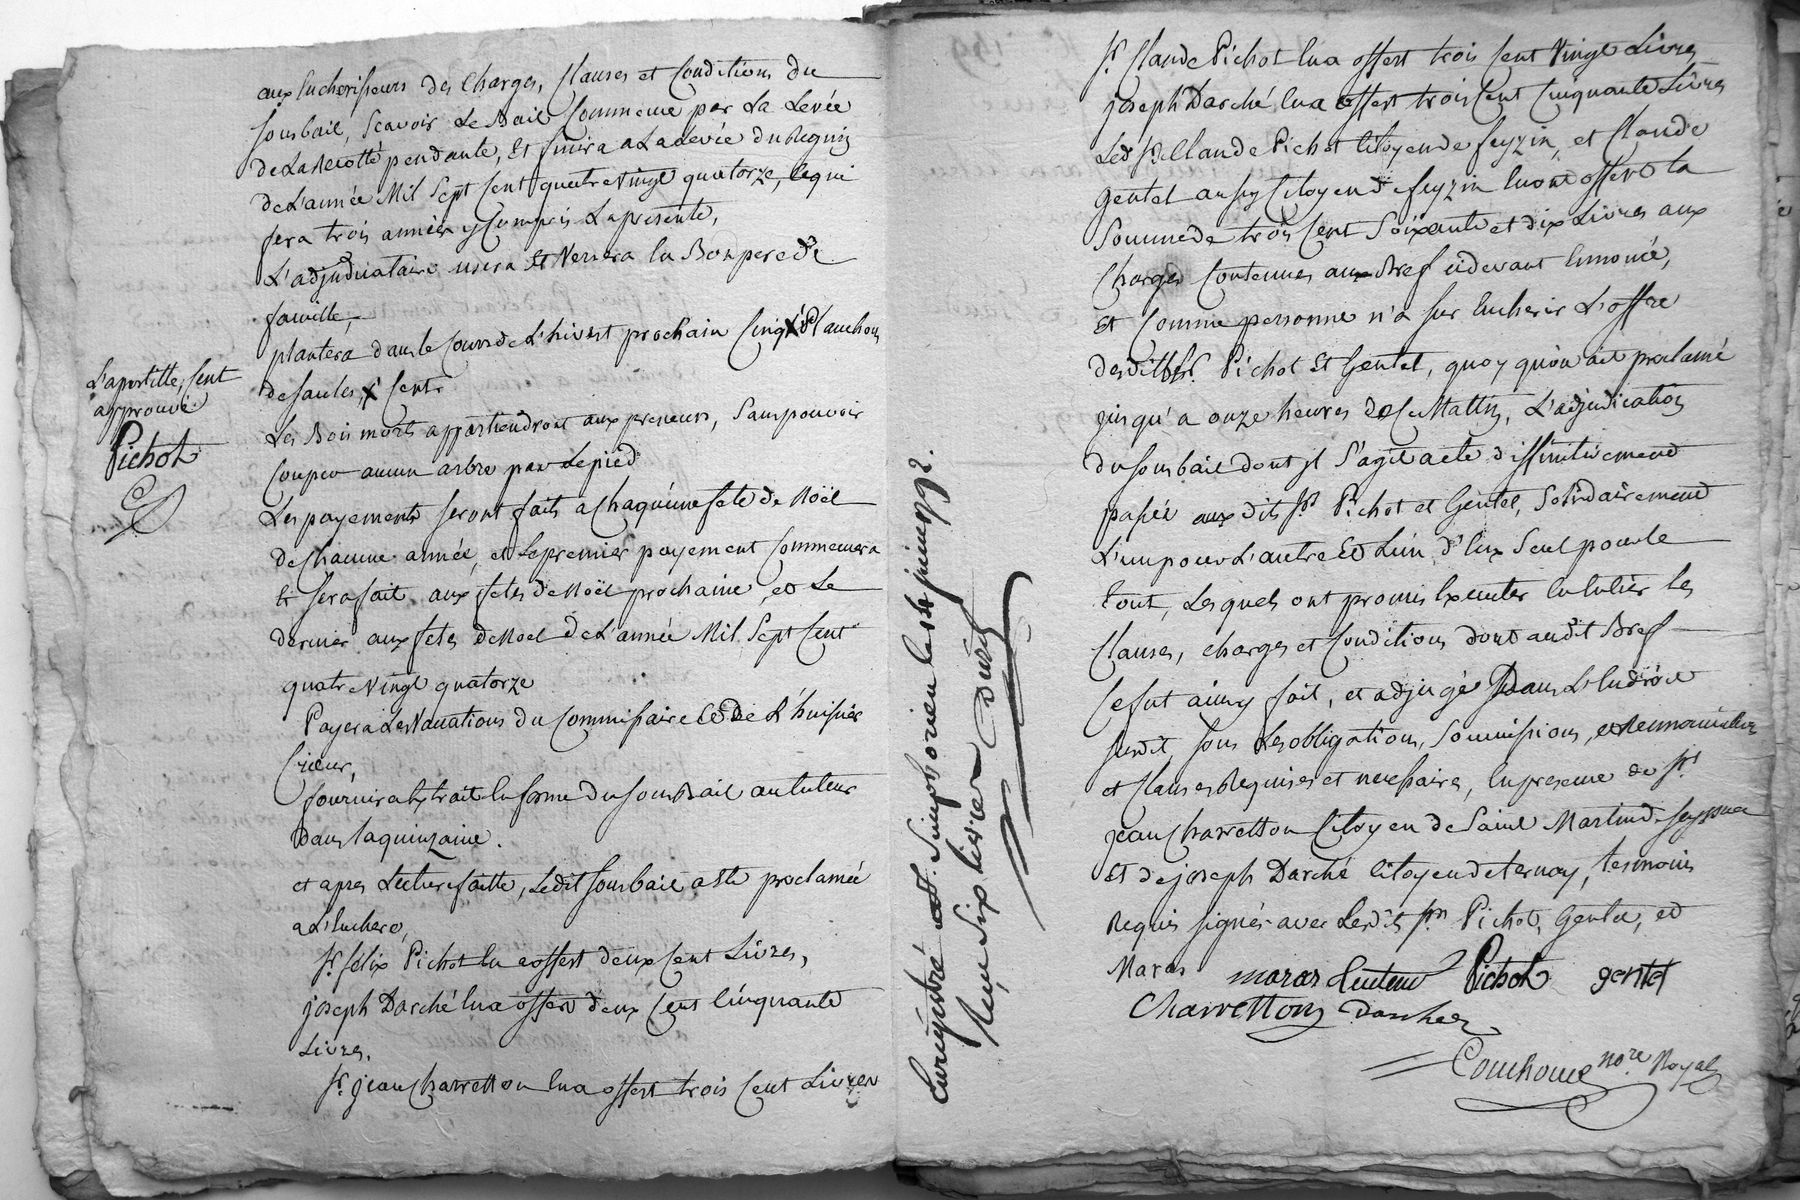 aux Encherisseurs des Charges, Clauses et Conditions du
sousbail, Scavoir Le Bail Commence par La Levée
de La Recotte pendante, Et finira a La Levée du Requin
de L'année Mil Sept Cent quatre Vingt quatorze, Ce qui
fera trois années y Compris La presente,
L'adjudicataire usera Et Versera En Bon pere de
famille,
plantera dans le Cours de L'hivert prochain Cinq Planchons
de Saules, Cent
L'apostille, Cent
approuvé
Pichot
Les Bois morts appartiendront aux preneurs, Sans pouvoir
Couper aucun arbre par Le pied
Les payements seront faits a Chaqu'une fete de Noël
de Chacune année, et Le premier payement Commencera
Et sera fait aux fetes de Noël prochaine, et Le
dernier aux fetes de Noel de L'année Mil Sept Cent
quatre Vingt quatorze
Payera Les Vacations du Commissaire et De L'huissier
Crieur,
fournira Extrait En forme du sousBail au tuteur
Dans La quinzaine.
et apres Lecture faitte, Ledit sousbail a Eté proclamée
a L'Enchere,
Sr. félix Pichot En a offert deux Cent Livres,
joseph Darché En a offert deux Cent Cinquante
Livres.
Sr. jean Charretton En a offert trois Cent Livres
Enregistré a St. Simphorien le 1er juin 1792.
Reçu Six livres
Sr. Claude Pichot En a offert trois Cent Vingt Livres
joseph Darché En a offert trois Cent Cinquante Livres
Led. Sr. Claude Pichot Citoyen de feyzin, et Claude
gentet aussy Citoyen de feyzin En ont offert la
Somme de trois Cent Soixante et dix Livres aux
Charges Contenues au Bref cidevant Enoncé,
Et Comme personne n'a sur Encherir L'offre
desdits Srs. Pichot Et Gentet, quoy qu'on ait proclamé
jusqu'a onze heures de Ce Mattin, L'adjudication
du sousbail dont jl S'agit a eté diffinitivement
passée auxdits Srs Pichot et Gentet, Solidairement
L'un pour L'autre Et L'un d'Eux Seul pour le
tout, Lesquels ont promis Executer En Entier Les
Clauses, charges et Conditions dont audit Bref
Ce fut ainsy fait, et adjugé Dans L'Endroit
susdit, sous Les obligations, Soumissions, et Renonciations
et Clauses Requises et necessaires, En presence de Sr.
jean Charretton Citoyen de Saint Martin d. Seyssuel
Et de joseph Darché Citoyen de ternay, temoins
Requis signés avec Lesdits Srs. Pichot, Gentet, et
Maras
maras tuteur Pichot gentet
Charretton Darcher
Couchoud nore Royal